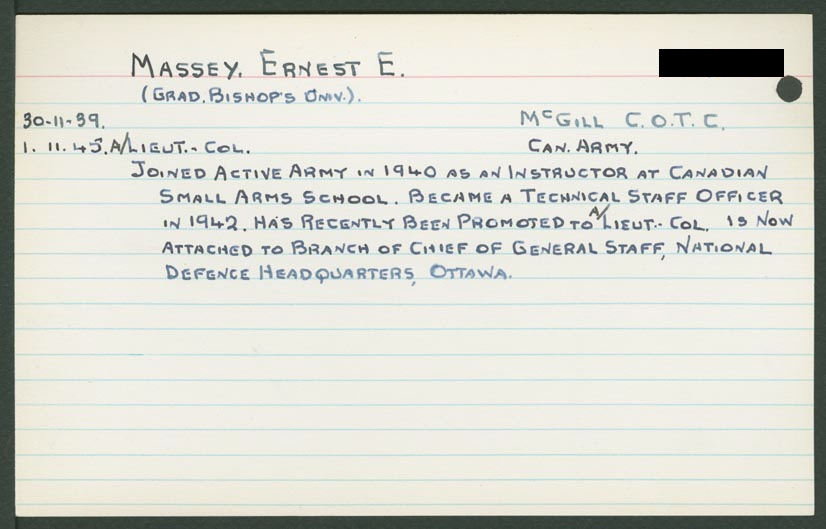 MASSEY, ERNEST E.
(GRAD. BISHOP'S UNIV.).
30-11-39. McGILL C.O.T.C.
1. 11. 45. A/LIEUT.-COL. CAN. ARMY.
JOINED ACTIVE ARMY IN 1940 AS AN INSTRUCTOR AT CANADIAN
SMALL ARMS SCHOOL. BECAME A TECHNICAL STAFF OFFICER
IN 1942. HAS RECENTLY BEEN PROMOTED TO A/LIEUT.-COL. IS NOW
ATTACHED TO BRANCH OF CHIEF OF GENERAL STAFF, NATIONAL
DEFENCE HEADQUARTERS, OTTAWA.